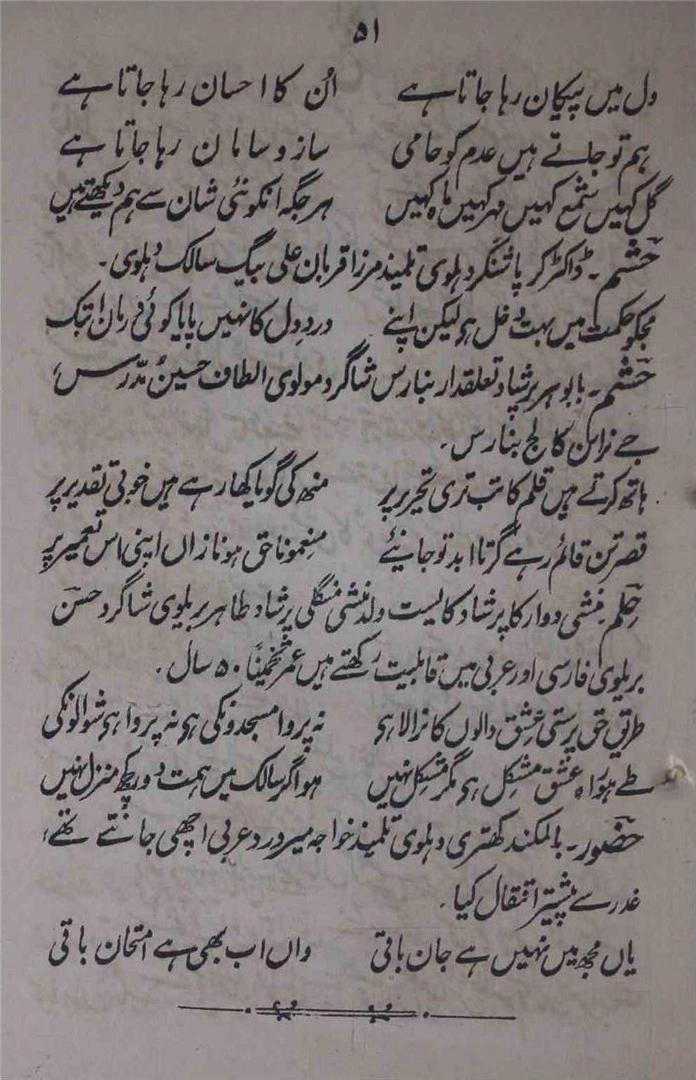 ۵۱
دل میں پیکان رہا جاتا ہے اُن کا احسان رہا جاتا ہے
ہم تو جاتے ہیں عدم کو حامی ساز و سامان رہا جاتا ہے
گل کہیں شمع کہیں مہر کہیں ماہ کہیں ہر جگہ انکو نئی شان سے ہم دیکھتے ہیں
حشم۔ ڈاکٹر کرپا شنکر دہلوی تلمیذ مرزا قربان علی بیگ سالک دہلوی۔
مجکو حکمت میں بہت دخل ہو لیکن اپنے درد دل کا نہیں پایا کوئی درماں ابتک
حشم۔ بابو ہر پرشاد تعلقدار بنارس شاگرد مولوی الطاف حسین مدرس
جے نراین کالج بنارس۔
ہاتھ کرتے ہیں قلم کاتب تری تحریر پر منھ کی گویا کھا رہے ہیں خوبی تقدیر پر
قصر تن قائم رہے گر تا ابد تو جانیئے منعمو ناحق ہو نازاں اپنی اس تعمیر پر
حلم۔ منشی دوارکا پرشاد کایست ولد منشی منگلی پرشاد طاہر بریلوی شاگرد حسن
بریلوی فارسی اور عربی میں قابلیت رکھتے ہیں عمر تخمیناً ۵۰ سال۔
طریق حق پرستی عشق والوں کا نرالا ہو نہ پروا مسجدونکی ہو نہ پروا ہو شوالونکی
طے ہو راہ عشق مشکل ہو مگر مشکل نہیں ہو اگر سالک میں ہمت دور کچھ منزل نہیں
حضور۔ بالمکند کھتری دہلوی تلمیذ خواجہ میر درد عربی اچھی جانتے تھے،
غدر سے پیشتر انتقال کیا۔
یاں مجھ میں نہیں ہے جان باقی واں اب بھی ہے امتحان باقی